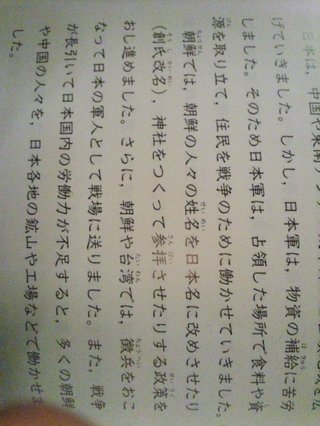 本は，中国や東南ア
げていきました。しかし，日本軍は，物資の補給に苦労
しました。そのため日本軍は，占領した場所で食料や資
源を取り立て，住民を戦争のために働かせていきました。
朝鮮では，朝鮮の人々の姓名を日本名に改めさせたり
(創氏改名)，神社をつくって参拝させたりする政策を
おし進めました。さらに，朝鮮や台湾では，徴兵をおこ
なって日本の軍人として戦場に送りました。また，戦争
が長引いて日本国内の労働力が不足すると，多くの朝鮮
や中国の人々を，日本各地の鉱山や工場などで働かせま
した。